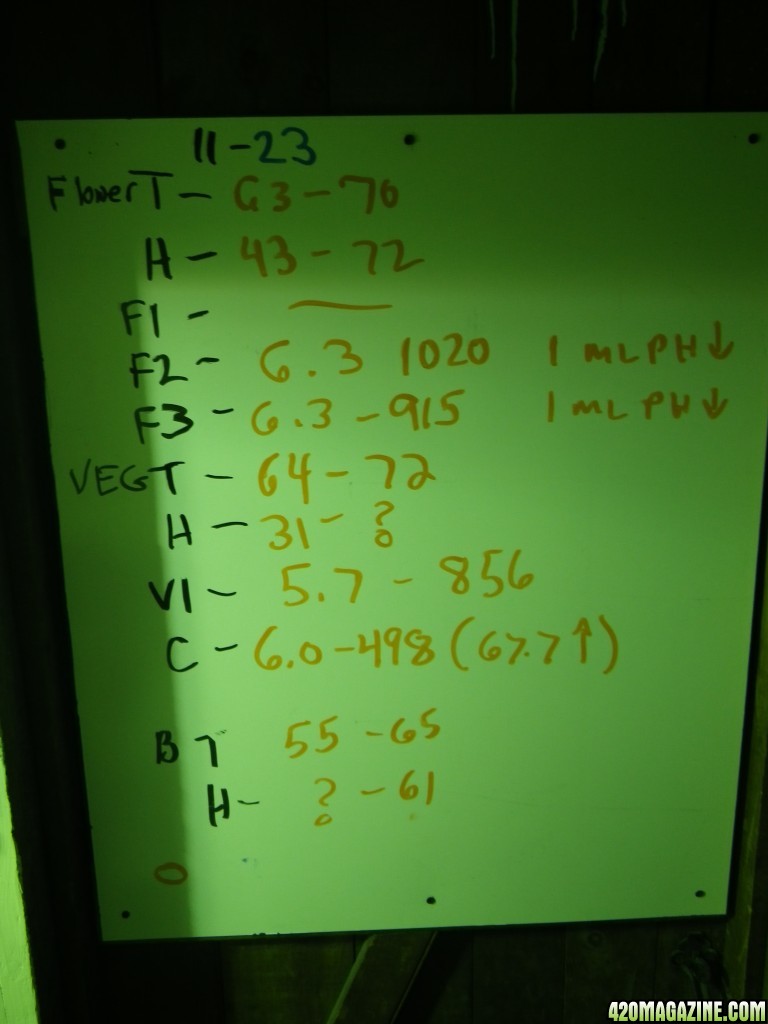 11-23
Flower T - 63-70
H - 43-72
F1 - —
F2 - 6.3 1020 1 ML PH↓
F3 - 6.3-915 1 ML PH↓
VEG T - 64-72
H - 31-?
V1 - 5.7 - 856
C - 6.0-498 (67.7↑)
B T 55-65
H- ?-61
O
420MAGAZINE.COM